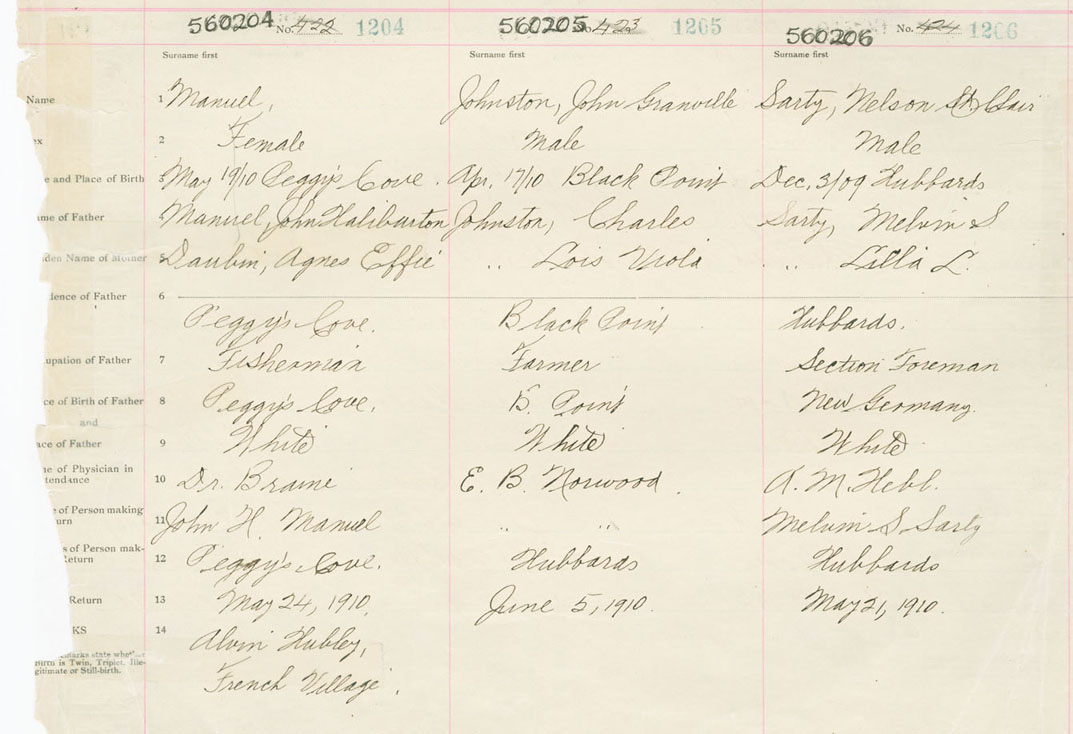 560204 No. 422 1204 560205 No. 423 1205 560206 No. 424 1206
Surname first Surname first Surname first
Name 1 Manuel, Johnston, John Granville Sarty, Nelson St. Clair
ex 2 Female Male Male
e and Place of Birth 3 May 19/10 Peggy's Cove. Apr. 17/10 Black Point Dec. 3/09 Hubbards
me of Father Manuel, John Haliburton Johnston, Charles Sarty, Melvin S
iden Name of Mother 5 Daubin, Agnes Effie " Lois Viola " Lilla L.
dence of Father 6
Peggy's Cove. Black Point Hubbards.
upation of Father 7 Fisherman Farmer Section Foreman
ce of Birth of Father 8 Peggy's Cove. B. Point New Germany.
and
ace of Father 9 White White White
ne of Physician in
tendance 10 Dr. Braine E. B. Norwood. A. M. Hebb.
e of Person making
urn 11 John H. Manuel " " Melvin S Sarty
s of Person mak-
Return 12 Peggy's Cove. Hubbards Hubbards
Return 13 May 24, 1910. June 5, 1910. May 21, 1910.
KS 14 Alvin Hubley,
marks state whether
turn is Twin, Triplet, Ille-
gitimate or Still-birth.
French Village.